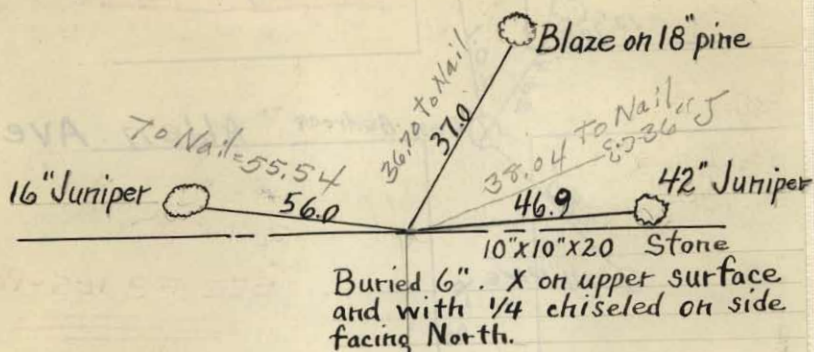 Blaze on 18" pine
36.70 to Nail
37.0
To Nail = 55.54
56.0
16" Juniper
38.04 to Nail
46.9
42" Juniper
10"x10"x20 Stone
Buried 6". X on upper surface
and with 1/4 chiseled on side
facing North.